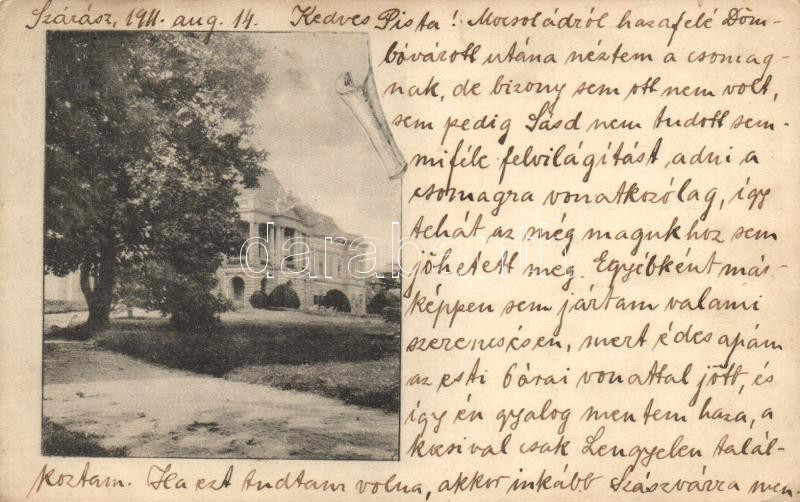 Szárász, 1911. aug. 14. Kedves Pista! Mocsoládról hazafelé Dom-
bóvárott utána néztem a csomag-
nak, de bizony sem ott nem volt,
sem pedig Sásd nem tudott sem-
miféle felvilágítást adni a
csomagra vonatkozólag, így
tehát az még magukhoz sem
jöhetett még. Egyébként más-
képpen sem jártam valami
szerencsésen, mert édes apám
az esti 6 órai vonattal jött, és
így én gyalog mentem haza, a
kocsival csak Lengyelen talál-
koztam. Ha ezt tudtam volna, akkor inkább Szászvárra men
darabanth